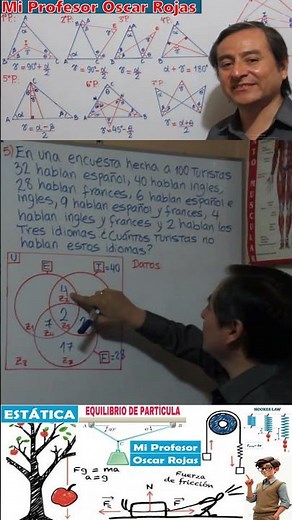 Mi Profesor Oscar Rojas
1°P.
2°P.
3°P.
4°P.
γ=90°+ α/2
γ=90°- α/2
γ= α/2
α + γ=180°
5°P.
6°P.
7°P.
γ= α-β/2
γ=45°- α/2
γ= α+β/2
5) En una encuesta hecha a 100 Turistas
32 hablan español, 40 hablan ingles,
28 hablan frances, 6 español e
ingles, 9 hablan español y frances, 4
hablan ingles y frances y 2 hablan los
Tres idiomas ¿Cuántos turistas no
hablan estos idiomas?
TO MUSC
U
E
I =40
Datos:
4
Z3
2
Z5
7
Z4
Z1
17
Z7
F =28
Z8
ESTÁTICA
EQUILIBRIO DE PARTÍCULA
HOOKES LAW
Mi Profesor
Oscar Rojas
Fg = ma
a=g
Fuerza
de fricción
N
F